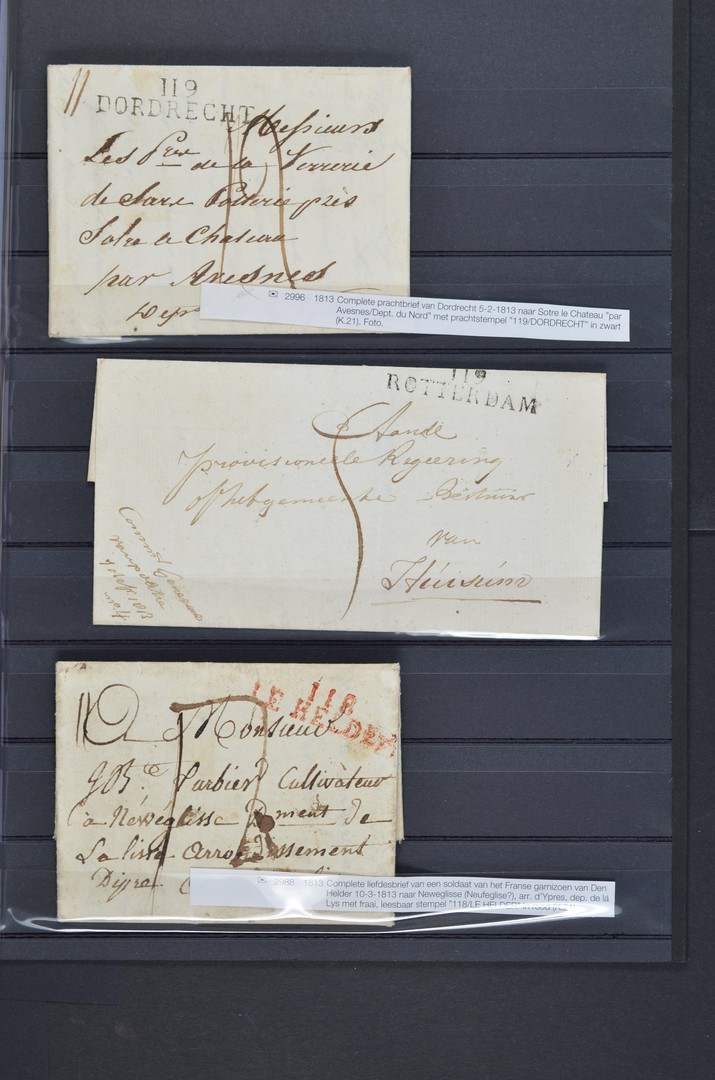 119
DORDRECHT
Messieurs
Les Pres de la Verrerie
de Sars Poterie près
Solre le Chateau
par Avesnes
✉ 2996 1813 Complete prachtbrief van Dordrecht 5-2-1813 naar Sotre le Chateau "par
Avesnes/Dept. du Nord" met prachtstempel "119/DORDRECHT" in zwart
(K.21). Foto.
119
ROTTERDAM
Aande
provisioneele Regeering
of hetgemeente Bestuur
van
Huissen
1813
118
LE HELDER
A Monsieur
Barbier Cultivateur
à Néwéglisse Dment de
La liss arrondissement
Dipre
✉ 2988 1813 Complete liefdesbrief van een soldaat van het Franse garnizoen van Den
Helder 10-3-1813 naar Neweglisse (Neufeglise?), arr. d'Ypres, dep. de la
Lys met fraai, leesbaar stempel "118/LE HELDER" in rood